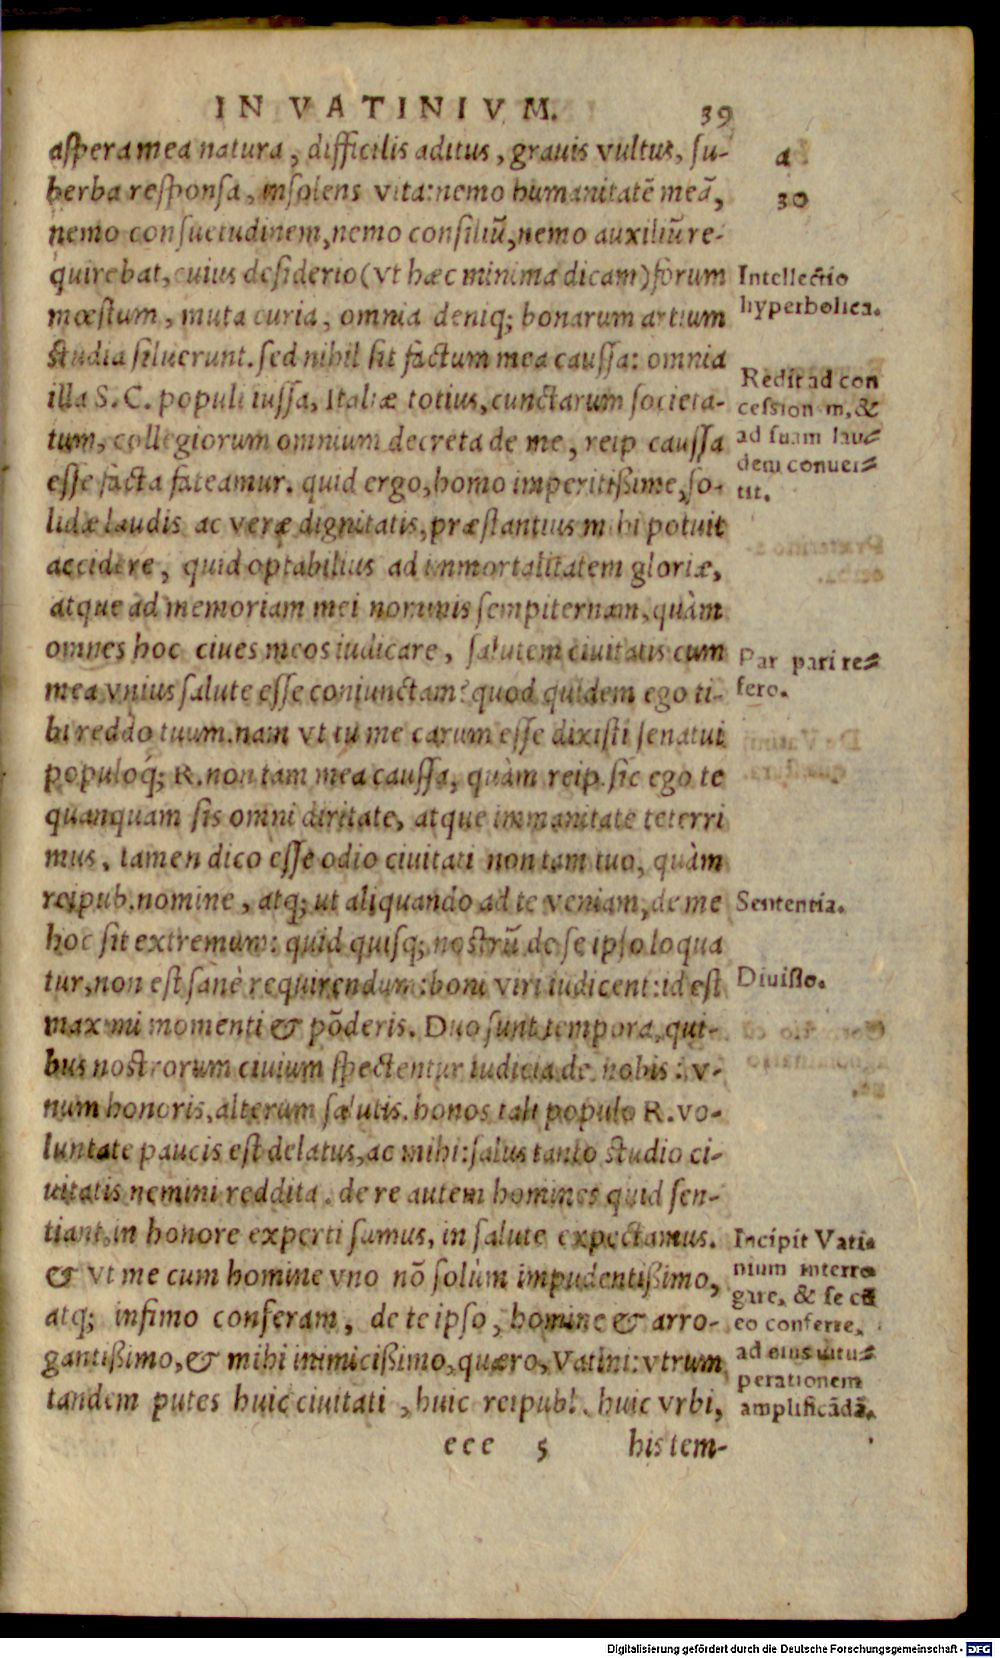 IN VATINIVM. 39
aspera mea natura, difficilis aditus, grauis vultus, su-
a
berba responsa, insolens vita: nemo humanitatē meā,
30
nemo consuetudinem, nemo consiliū, nemo auxiliū re-
quirebat, cuius desiderio (vt hæc minima dicam) forum
mœstum, muta curia, omnia deniq; bonarum artium
studia siluerunt. sed nihil sit factum mea caussa: omnia
illa S. C. populi iussa, Italiæ totius, cunctarum societa-
tum, collegiorum omnium decreta de me, reip caussa
esse facta fateamur. quid ergo, homo imperitißime, so-
lidæ laudis ac veræ dignitatis, præstantius mihi potuit
accidere, quid optabilius ad immortalitatem gloriæ,
atque ad memoriam mei nominis sempiternam, quàm
omnes hoc ciues meos iudicare, salutem ciuitatis cum
mea vnius salute esse coniunctam? quod quidem ego ti-
bi reddo tuum. nam vt tu me carum esse dixisti senatui
populoq́; R. non tam mea caussa, quàm reip. sic ego te
quanquam sis omni diritate, atque immanitate teterri
mus, tamen dico esse odio ciuitati non tam tuo, quàm
reipub. nomine, atq; ut aliquando ad te veniam, de me
hoc sit extremum: quid quisq; nostrū de se ipso loqua
tur, non est sanè requirendum: boni viri iudicent: id est
maximi momenti & pōderis. Duo sunt tempora, qui-
bus nostrorum ciuium spectentur iudicia de nobis: v-
num honoris, alterum salutis. honos tali populo R. vo-
luntate paucis est delatus, ac mihi: salus tanto studio ci-
uitatis nemini reddita. de re autem homines quid sen-
tiant, in honore experti sumus, in salute expectamus.
& vt me cum homine vno nō solùm impudentißimo,
atq; infimo conferam, de te ipso, homine & arro-
gantißimo, & mihi inimicißimo, quæro, Vatini: vtrum
tandem putes huic ciuitati, huic reipubl. huic vrbi,
eee 5 his tem-
Intellectio
hyperbolica.
Redit ad con
cessionem, &
ad suam lau-
dem conuer-
tit.
Par pari re-
fero.
Sententia.
Diuisio.
Incipit Vati-
nium interro
gare, & se cū
eo conferre,
ad eius uitu-
perationem
amplificādā.
Digitalisierung gefördert durch die Deutsche Forschungsgemeinschaft - DFG